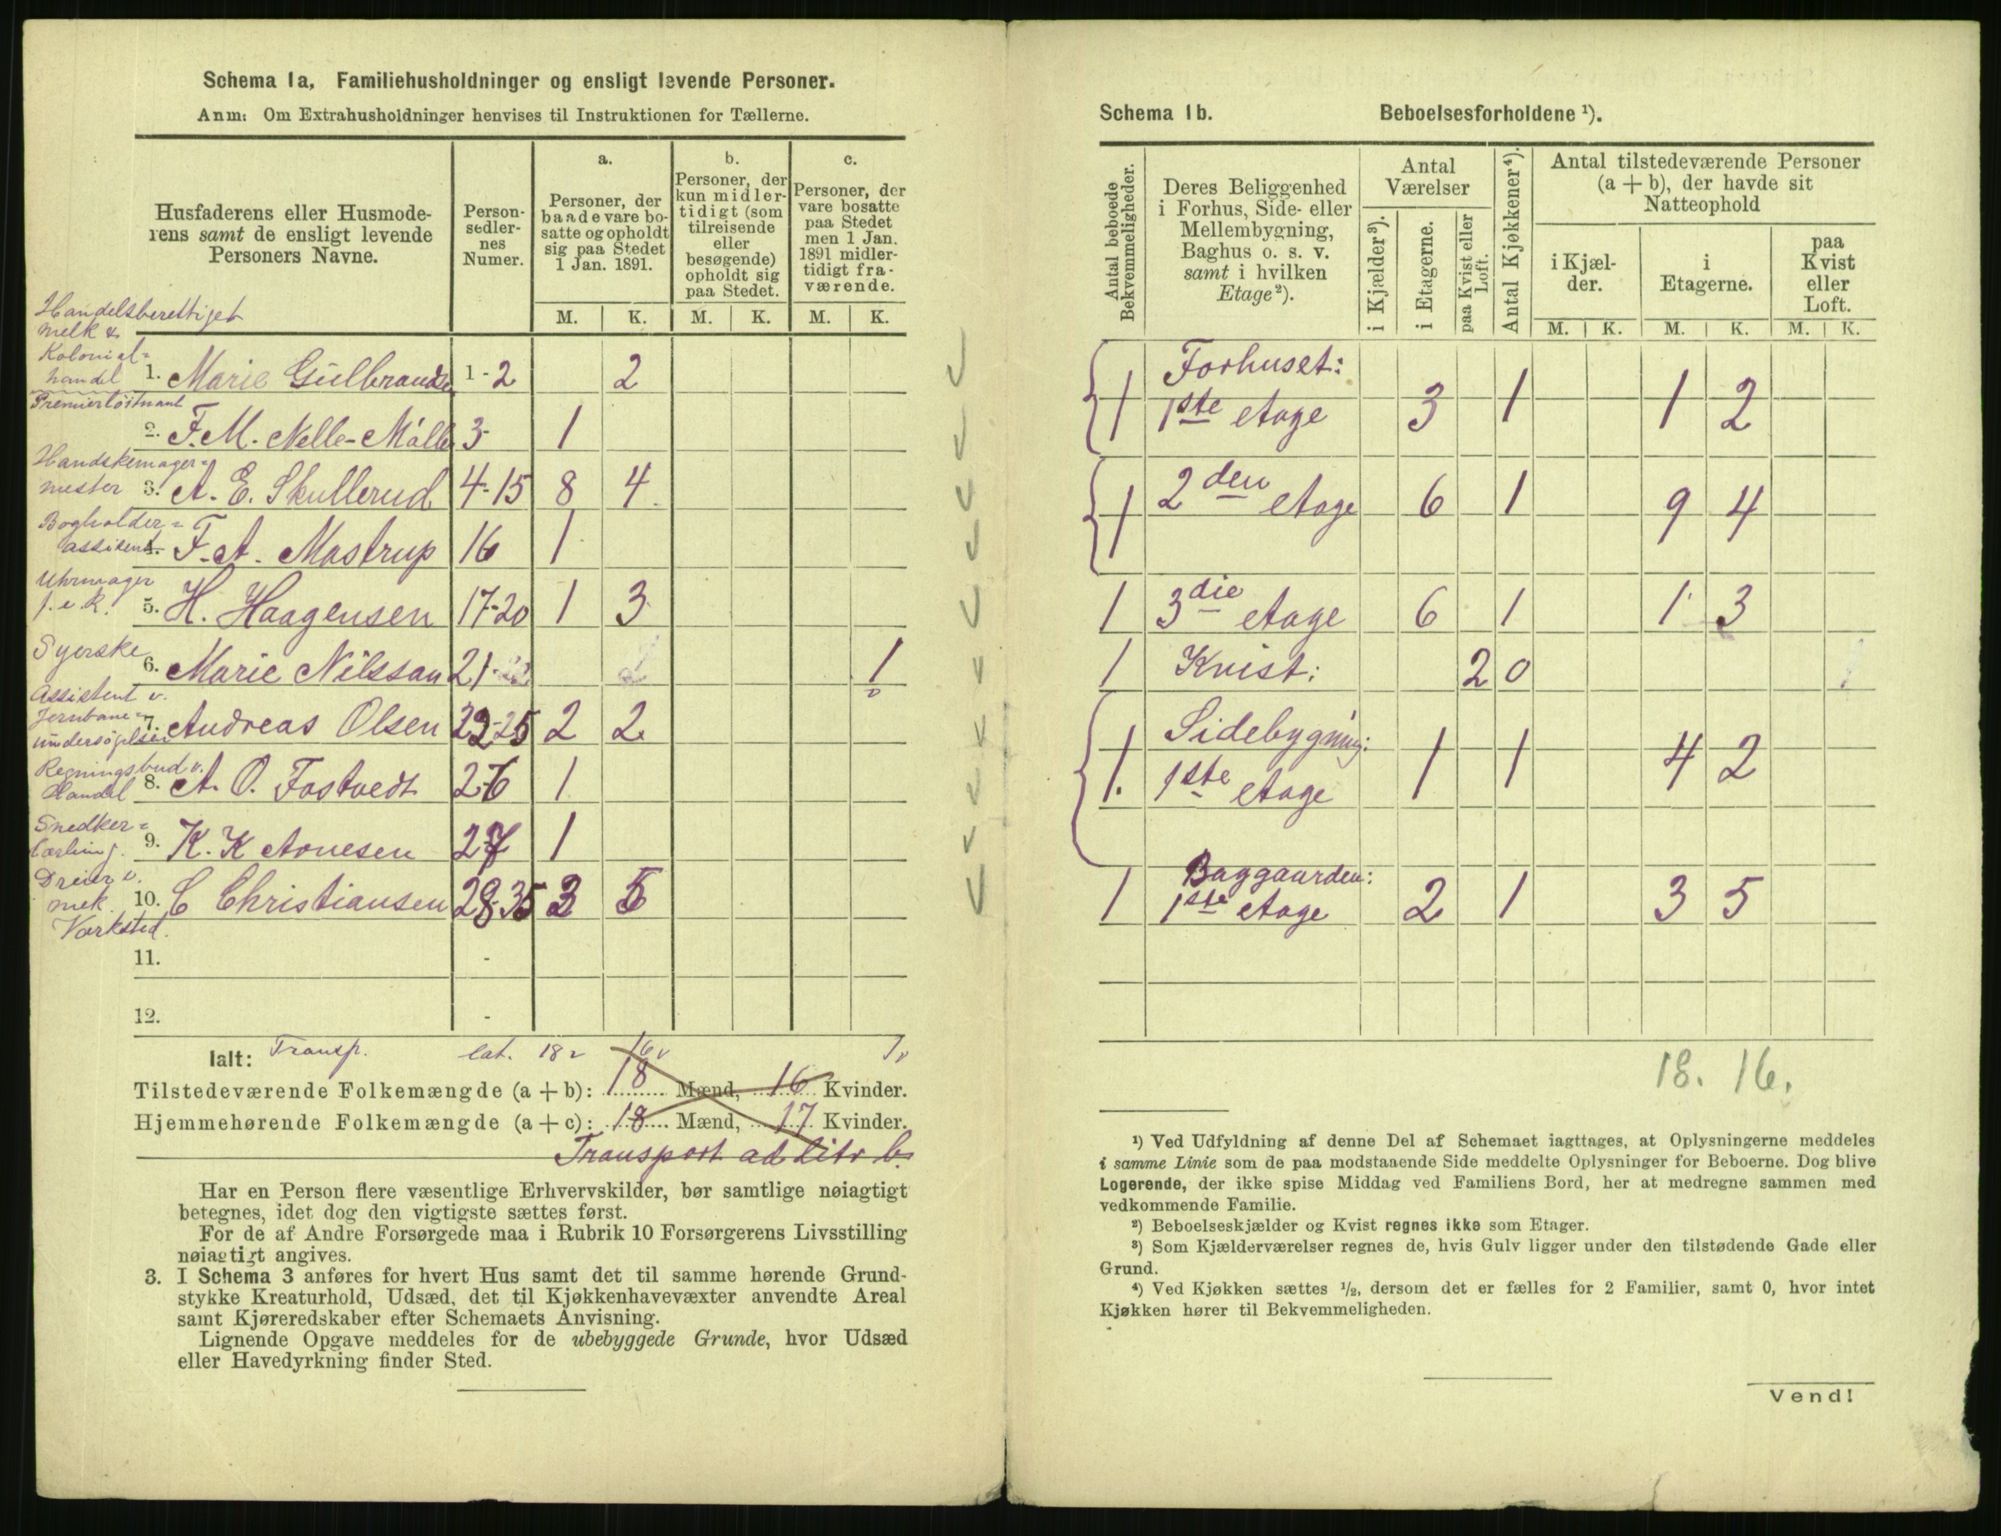 Schema 1a, Familiehusholdninger og ensligt levende Personer.
Anm: Om Extrahusholdninger henvises til Instruktionen for Tællerne.
Husfaderens eller Husmode-
rens samt de ensligt levende
Personers Navne.
Person-
sedler-
nes
Numer.
a.
Personer, der
baade vare bo-
satte og opholdt
sig paa Stedet
1 Jan. 1891.
b.
Personer, der
kun midler-
tidigt (som
tilreisende
eller
besøgende)
opholdt sig
paa Stedet.
c.
Personer, der
vare bosatte
paa Stedet
men 1 Jan.
1891 midler-
tidigt fra-
værende.
M. K. M. K. M. K.
Handelsberettiget
Melk &
Kolonial=
handel 1. Marie Gulbrandsen 1-2 2
Premierløitnant
2. F. M. Nelle-Møller 3- 1
Handskemager=
mester 3. A. E. Skullerud 4-15 8 4
Bogholder=
assistent 4. F. A. Mostrup 16 1
Uhrmager
f. e. R. 5. H. Haagensen 17-20 1 3
Syerske
6. Marie Nilssan 21- 1
Assistent v.
Jernbane=
undersøgelsen 7. Andreas Olsen 22-25 2 2
Regningsbud v.
Handel 8. A. O. Fostvedt 26 1
Snedker=
lærling. 9. K. K. Aonesen 27 1
Dreier v.
mek. 10. C Christiansen 28-35 3 5
Værksted.
11. -
12. -
Ialt: Transp. lat. 18 16 1
Tilstedeværende Folkemængde (a + b): 18 Mænd, 16 Kvinder.
Hjemmehørende Folkemængde (a + c): 18 Mænd, 17 Kvinder.
Transport ad Litr b.
Har en Person flere væsentlige Erhvervskilder, bør samtlige nøiagtigt
betegnes, idet dog den vigtigste sættes først.
For de af Andre Forsørgede maa i Rubrik 10 Forsørgerens Livsstilling
nøiagtigt angives.
3. I Schema 3 anføres for hvert Hus samt det til samme hørende Grund-
stykke Kreaturhold, Udsæd, det til Kjøkkenhavevæxter anvendte Areal
samt Kjøreredskaber efter Schemaets Anvisning.
Lignende Opgave meddeles for de ubebyggede Grunde, hvor Udsæd
eller Havedyrkning finder Sted.
Schema 1b. Beboelsesforholdene ¹).
Antal beboede
Bekvemmeligheder.
Deres Beliggenhed
i Forhus, Side- eller
Mellembygning,
Baghus o. s. v.
samt i hvilken
Etage²).
Antal
Værelser
i Kjælder³).
i Etagerne.
paa Kvist eller
Loft.
Antal Kjøkkener⁴).
Antal tilstedeværende Personer
(a + b), der havde sit
Natteophold
i Kjæl-
der.
i
Etagerne.
paa
Kvist
eller
Loft.
M. K. M. K. M. K.
Forhuset:
1 1ste Etage 3 1 1 2
1 2den Etage 6 1 9 4
1 3die Etage 6 1 1 3
1 Kvist: 2 0
Sidebygning:
1. 1ste Etage 1 1 4 2
Baggaarden:
1 1ste Etage 2 1 3 5
18. 16.
¹) Ved Udfyldning af denne Del af Schemaet iagttages, at Oplysningerne meddeles
i samme Linie som de paa modstaaende Side meddelte Oplysninger for Beboerne. Dog blive
Logerende, der ikke spise Middag ved Familiens Bord, her at medregne sammen med
vedkommende Familie.
²) Beboelseskjælder og Kvist regnes ikke som Etager.
³) Som Kjælderværelser regnes de, hvis Gulv ligger under den tilstødende Gade eller
Grund.
⁴) Ved Kjøkken sættes ½, dersom det er fælles for 2 Familier, samt 0, hvor intet
Kjøkken hører til Bekvemmeligheden.
Vend!